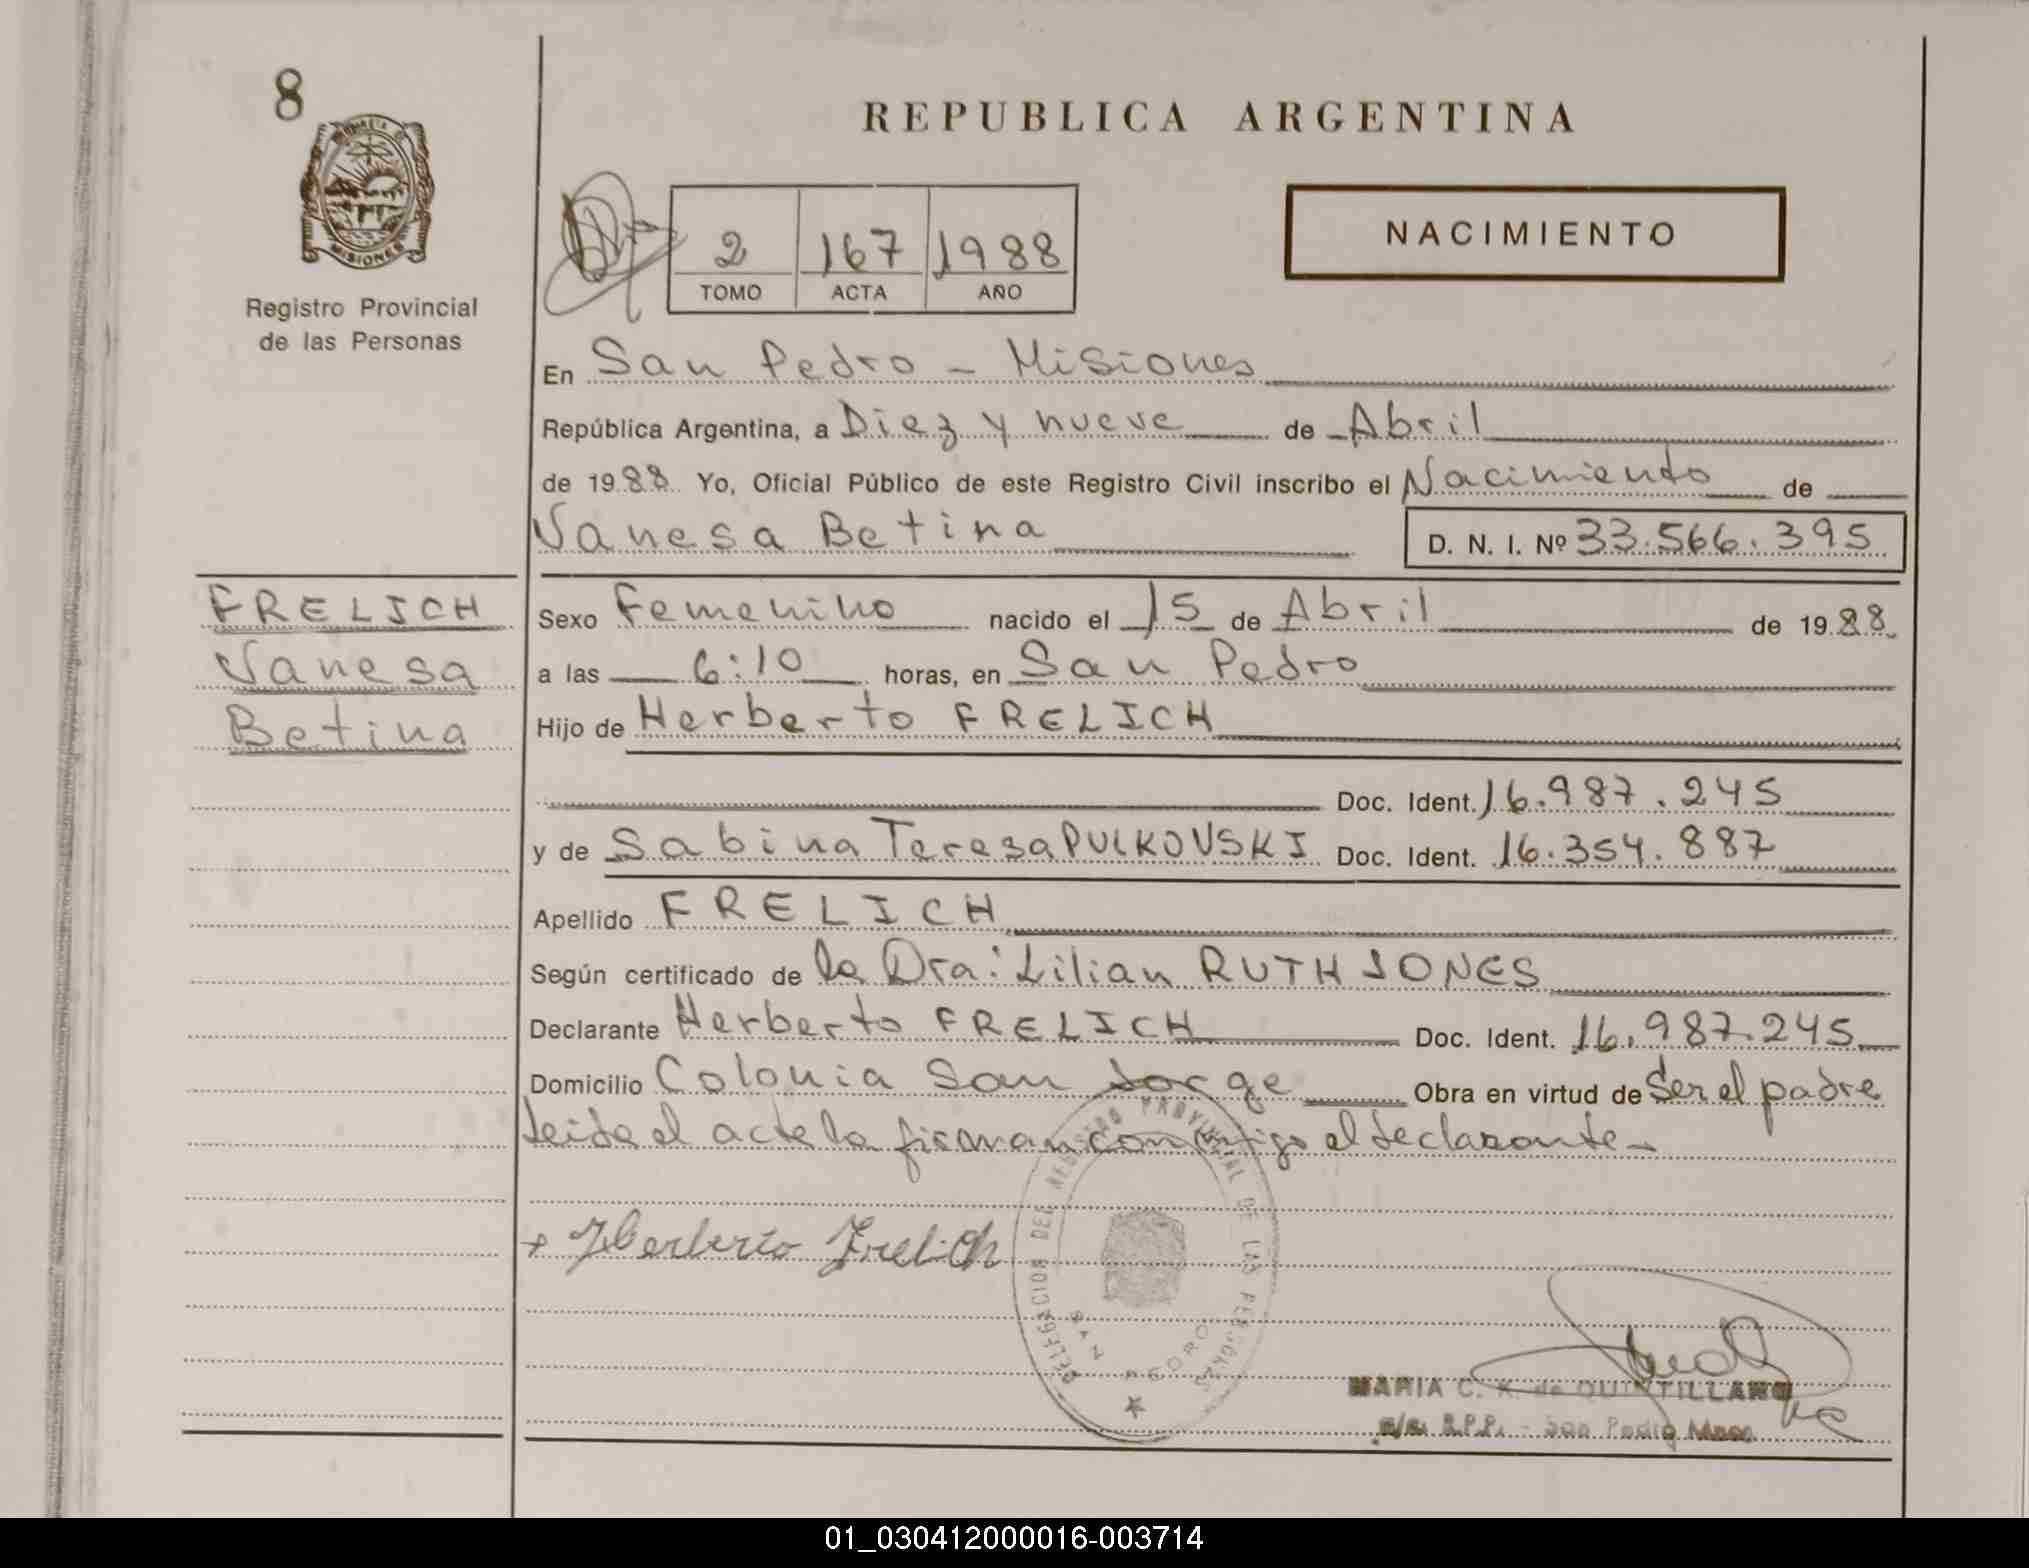 8
PROVINCIA DE
MISIONES
Registro Provincial
de las Personas
REPUBLICA ARGENTINA
NACIMIENTO
2 167 1988
TOMO ACTA AÑO
En San Pedro - Misiones
República Argentina, a Diez y nueve de Abril
de 1988 Yo, Oficial Público de este Registro Civil inscribo el Nacimiento de
Vanesa Betina D. N. I. Nº 33.566.395
FRELICH
Vanesa
Betina
Sexo Femenino nacido el 15 de Abril de 1988
a las 6:10 horas, en San Pedro
Hijo de Herberto FRELICH
Doc. Ident. 16.987.245
y de Sabina Teresa PULKOVSKI Doc. Ident. 16.354.887
Apellido FRELICH
Según certificado de la Dra: Lilian RUTH JONES
Declarante Herberto FRELICH Doc. Ident. 16.987.245
Domicilio Colonia San Jorge Obra en virtud de Ser el padre
Leida el acta la firman conmigo el declarante-
+ Herberto Frelich
DELEGACION DEL REGISTRO PROVINCIAL DE LAS PERSONAS
SAN PEDRO
MARIA C. K. de QUINTILLANO
R.P.P. - San Pedro Mnes.
01_030412000016-003714